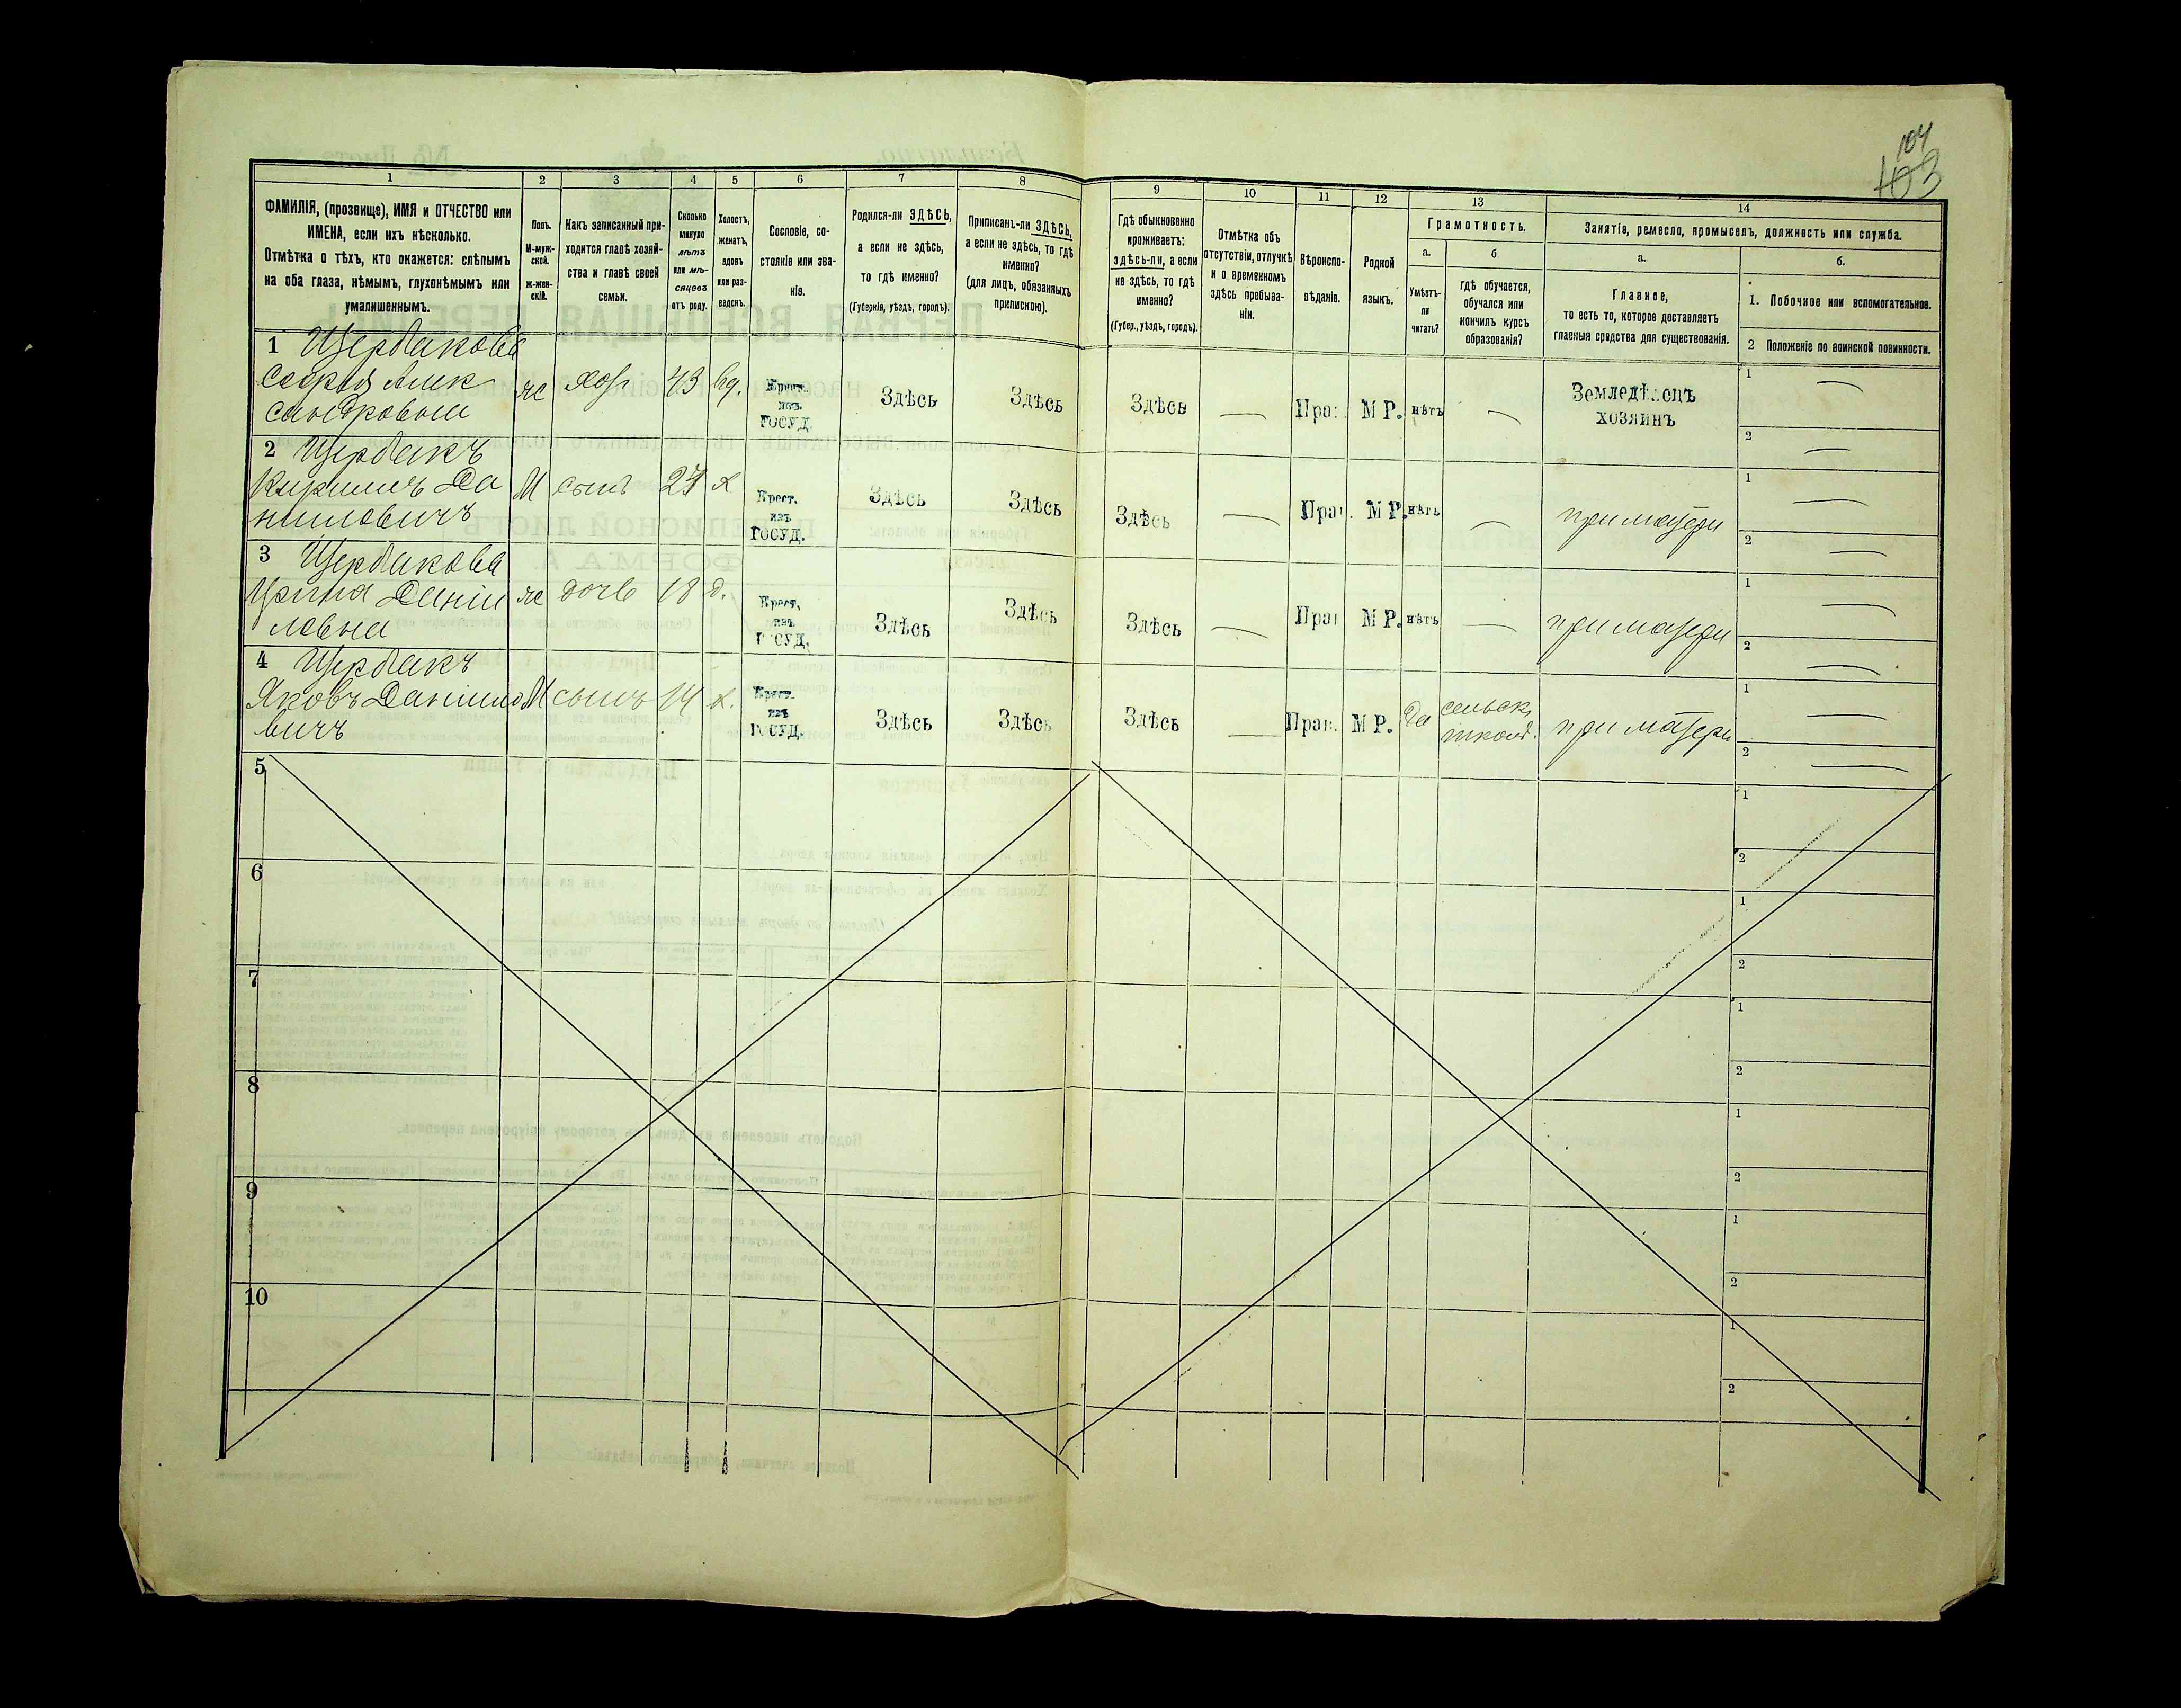 104
103
1
2
3
4
5
6
7
8
9
10
11
12
13
14
ФАМИЛІЯ, (прозвище), ИМЯ и ОТЧЕСТВО или
ИМЕНА, если ихъ нѣсколько.
Отмѣтка о тѣхъ, кто окажется: слѣпымъ
на оба глаза, нѣмымъ, глухонѣмымъ или
умалишеннымъ.
Полъ.
М-муж-
ской.
ж-жен-
скій.
Какъ записанный при-
ходится главѣ хозяй-
ства и главѣ своей
семьи.
Сколько
минуло
лѣтъ
или мѣ-
сяцевъ
отъ роду.
Холостъ,
женатъ,
вдовъ
или раз-
веденъ.
Сословіе, со-
стояніе или зва-
ніе.
Родился-ли ЗДѢСЬ,
а если не здѣсь,
то гдѣ именно?
(Губернія, уѣздъ, городъ).
Приписанъ-ли ЗДѢСЬ,
а если не здѣсь, то гдѣ
именно?
(для лицъ, обязанныхъ
припискою).
Гдѣ обыкновенно
проживаетъ:
здѣсь-ли, а если
не здѣсь, то гдѣ
именно?
(Губер., уѣздъ, городъ).
Отмѣтка объ
отсутствіи, отлучкѣ
и о временномъ
здѣсь пребыва-
ніи.
Вѣроиспо-
вѣданіе.
Родной
языкъ.
Грамотность.
а.
Умѣетъ-
ли
читать?
б
гдѣ обучается,
обучался или
кончилъ курсъ
образованія?
Занятіе, ремесло, промыселъ, должность или служба.
а.
Главное,
то есть то, которое доставляетъ
главныя средства для существованія.
б.
1. Побочное или вспомогательное.
2 Положеніе по воинской повинности.
1 Щербакова
софия Алек
сандровыи
ж
хоз
43
вд.
Крест.
изъ
ГОСУД.
Здѣсь
Здѣсь
Здѣсь
Пра
М Р.
нѣтъ
Земледѣлецъ
хозяинъ
1
2
2 Щербакъ
Кирилъ Да
ниловичъ
М
сынъ
х
Крест.
изъ
ГОСУД.
Здѣсь
Здѣсь
Здѣсь
Пра
М Р.
нѣтъ
при матери
1
2
3 Щербакова
Ирина Даніи
ловна
ж
дочь
18
д.
Крест.
изъ
ГОСУД.
Здѣсь
Здѣсь
Здѣсь
Пра
М Р.
нѣтъ
при матери
1
2
4 Щербакъ
Яковъ Данило
вичъ
М
сынъ
14
х.
Крест.
изъ
ГОСУД.
Здѣсь
Здѣсь
Здѣсь
Прав.
М Р.
Да
сельск,
школ.
при матери
1
2
5
1
2
6
1
2
7
1
2
8
1
2
9
1
2
10
1
2